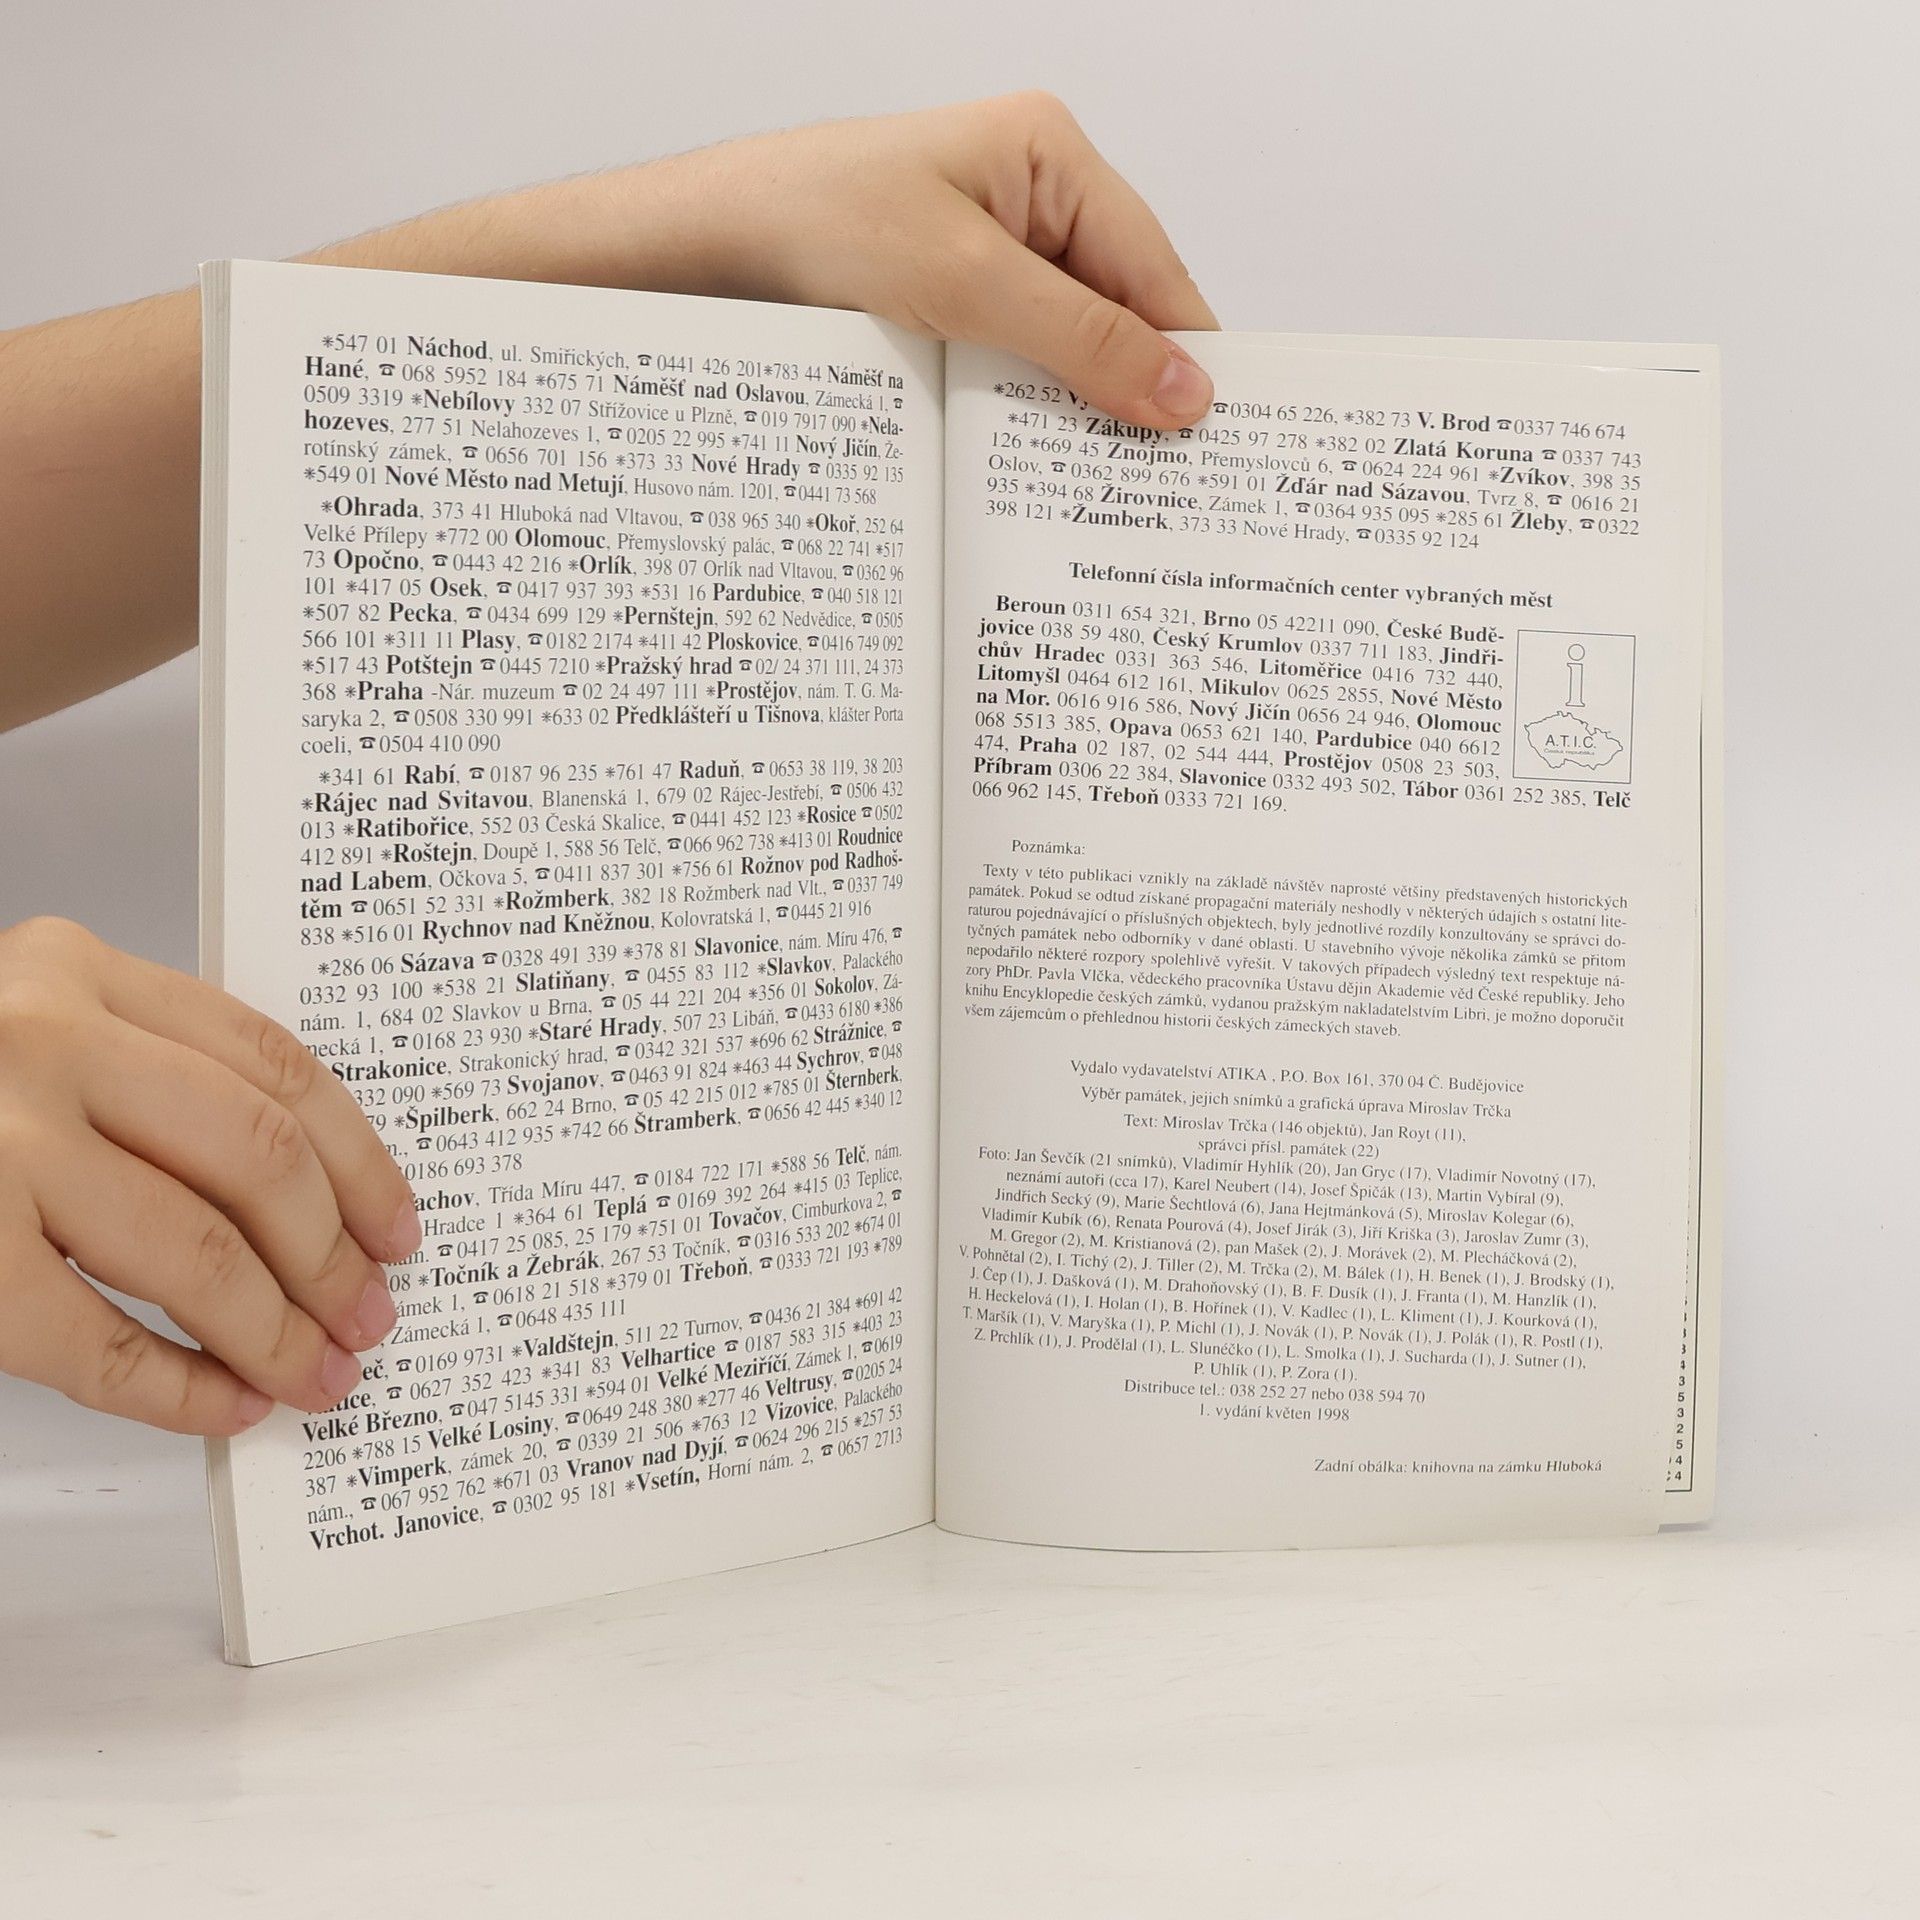 *547 01 Náchod, ul. Smiřických, ☎0441 426 201*783 44 Náměšť na
Hané, ☎ 068 5952 184 *675 71 Náměšť nad Oslavou, Zámecká 1, ☎
0509 3319 *Nebílovy 332 07 Střížovice u Plzně, ☎019 7917 090 *Nela-
hozeves, 277 51 Nelahozeves 1, ☎0205 22 995 *741 11 Nový Jičín, Že-
rotínský zámek, ☎ 0656 701 156 *373 33 Nové Hrady ☎ 0335 92 135
*549 01 Nové Město nad Metují, Husovo nám. 1201, ☎0441 73 568
*Ohrada, 373 41 Hluboká nad Vltavou, ☎038 965 340 *Okoř, 252 64
Velké Přílepy *772 00 Olomouc, Přemyslovský palác, ☎068 22 741 *517
73 Opočno, ☎0443 42 216 *Orlík, 398 07 Orlík nad Vltavou, ☎0362 96
101 *417 05 Osek, ☎0417 937 393 *531 16 Pardubice, ☎040 518 121
*507 82 Pecka, ☎0434 699 129 *Pernštejn, 592 62 Nedvědice, ☎0505
566 101 *311 11 Plasy, ☎0182 2174 *411 42 Ploskovice, ☎0416 749 092
*517 43 Potštejn ☎0445 7210 *Pražský hrad ☎02/ 24 371 111, 24 373
368 *Praha -Nár. muzeum ☎02 24 497 111 *Prostějov, nám. T. G. Ma-
saryka 2, ☎0508 330 991 *633 02 Předklášteří u Tišnova, klášter Porta
coeli, ☎0504 410 090
*341 61 Rabí, ☎0187 96 235 *761 47 Raduň, ☎0653 38 119, 38 203
*Rájec nad Svitavou, Blanenská 1, 679 02 Rájec-Jestřebí, ☎ 0506 432
013 *Ratibořice, 552 03 Česká Skalice, ☎0441 452 123 *Rosice ☎0502
412 891 *Roštejn, Doupě 1, 588 56 Telč, ☎066 962 738 *413 01 Roudnice
nad Labem, Očkova 5, ☎0411 837 301 *756 61 Rožnov pod Radhoš-
těm ☎0651 52 331 *Rožmberk, 382 18 Rožmberk nad Vlt., ☎0337 749
838 *516 01 Rychnov nad Kněžnou, Kolovratská 1, ☎0445 21 916
*286 06 Sázava ☎0328 491 339 *378 81 Slavonice, nám. Míru 476, ☎
0332 93 100 *538 21 Slatiňany, ☎ 0455 83 112 *Slavkov, Palackého
nám. 1, 684 02 Slavkov u Brna, ☎ 05 44 221 204 *356 01 Sokolov, Zá-
mecká 1, ☎0168 23 930 *Staré Hrady, 507 23 Libáň, ☎0433 6180 *386
Strakonice, Strakonický hrad, ☎0342 321 537 *696 62 Strážnice, ☎
332 090 *569 73 Svojanov, ☎0463 91 824 *463 44 Sychrov, ☎048
79 *Špilberk, 662 24 Brno, ☎05 42 215 012 *785 01 Šternberk,
☎0643 412 935 *742 66 Štramberk, ☎0656 42 445 *340 12
0186 693 378
achov, Třída Míru 447, ☎ 0184 722 171 *588 56 Telč, nám.
Hradce 1 *364 61 Teplá ☎ 0169 392 264 *415 03 Teplice,
☎0417 25 085, 25 179 *751 01 Tovačov, Cimburkova 2, ☎
08 *Točník a Žebrák, 267 53 Točník, ☎0316 533 202 *674 01
ámek 1, ☎0618 21 518 *379 01 Třeboň, ☎0333 721 193 *789
Zámecká 1, ☎0648 435 111
eč, ☎0169 9731 *Valdštejn, 511 22 Turnov, ☎0436 21 384 *691 42
tice, ☎ 0627 352 423 *341 83 Velhartice ☎ 0187 583 315 *403 23
Velké Březno, ☎047 5145 331 *594 01 Velké Meziříčí, Zámek 1, ☎0619
2206 *788 15 Velké Losiny, ☎0649 248 380 *277 46 Veltrusy, ☎0205 24
387 *Vimperk, zámek 20, ☎ 0339 21 506 *763 12 Vizovice, Palackého
nám., ☎067 952 762 *671 03 Vranov nad Dyjí, ☎0624 296 215 *257 53
Vrchot. Janovice, ☎ 0302 95 181 *Vsetín, Horní nám. 2, ☎0657 2713
*262 52 ☎0304 65 226, *382 73 V. Brod ☎0337 746 674
*471 23 Zákupy, ☎0425 97 278 *382 02 Zlatá Koruna ☎0337 743
126 *669 45 Znojmo, Přemyslovců 6, ☎0624 224 961 *Zvíkov, 398 35
Oslov, ☎0362 899 676 *591 01 Žďár nad Sázavou, Tvrz 8, ☎ 0616 21
935 *394 68 Žirovnice, Zámek 1, ☎0364 935 095 *285 61 Žleby, ☎0322
398 121 *Žumberk, 373 33 Nové Hrady, ☎0335 92 124
Telefonní čísla informačních center vybraných měst
Beroun 0311 654 321, Brno 05 42211 090, České Budě-
jovice 038 59 480, Český Krumlov 0337 711 183, Jindři-
chův Hradec 0331 363 546, Litoměřice 0416 732 440,
Litomyšl 0464 612 161, Mikulov 0625 2855, Nové Město
na Mor. 0616 916 586, Nový Jičín 0656 24 946, Olomouc
068 5513 385, Opava 0653 621 140, Pardubice 040 6612
474, Praha 02 187, 02 544 444, Prostějov 0508 23 503,
Příbram 0306 22 384, Slavonice 0332 493 502, Tábor 0361 252 385, Telč
066 962 145, Třeboň 0333 721 169.
i
A.T.I.C.
Česká republika
Poznámka:
Texty v této publikaci vznikly na základě návštěv naprosté většiny představených historických
památek. Pokud se odtud získané propagační materiály neshodly v některých údajích s ostatní lite-
raturou pojednávající o příslušných objektech, byly jednotlivé rozdíly konzultovány se správci do-
tyčných památek nebo odborníky v dané oblasti. U stavebního vývoje několika zámků se přitom
nepodařilo některé rozpory spolehlivě vyřešit. V takových případech výsledný text respektuje ná-
zory PhDr. Pavla Vlčka, vědeckého pracovníka Ústavu dějin Akademie věd České republiky. Jeho
knihu Encyklopedie českých zámků, vydanou pražským nakladatelstvím Libri, je možno doporučit
všem zájemcům o přehlednou historii českých zámeckých staveb.
Vydalo vydavatelství ATIKA , P.O. Box 161, 370 04 Č. Budějovice
Výběr památek, jejich snímků a grafická úprava Miroslav Trčka
Text: Miroslav Trčka (146 objektů), Jan Royt (11),
správci přísl. památek (22)
Foto: Jan Ševčík (21 snímků), Vladimír Hyhlík (20), Jan Gryc (17), Vladimír Novotný (17),
neznámí autoři (cca 17), Karel Neubert (14), Josef Špičák (13), Martin Vybíral (9),
Jindřich Secký (9), Marie Šechtlová (6), Jana Hejtmánková (5), Miroslav Kolegar (6),
Vladimír Kubík (6), Renata Pourová (4), Josef Jirák (3), Jiří Kriška (3), Jaroslav Zumr (3),
M. Gregor (2), M. Kristianová (2), pan Mašek (2), J. Morávek (2), M. Plecháčková (2),
V. Pohnětal (2), I. Tichý (2), J. Tiller (2), M. Trčka (2), M. Bálek (1), H. Benek (1), J. Brodský (1),
J. Čep (1), J. Dašková (1), M. Drahoňovský (1), B. F. Dusík (1), J. Franta (1), M. Hanzlík (1),
H. Heckelová (1), I. Holan (1), B. Hořínek (1), V. Kadlec (1), L. Kliment (1), J. Kourková (1),
T. Maršík (1), V. Maryška (1), P. Michl (1), J. Novák (1), P. Novák (1), J. Polák (1), R. Postl (1),
Z. Prchlík (1), J. Prodělal (1), L. Slunéčko (1), L. Smolka (1), J. Sucharda (1), J. Sutner (1),
P. Uhlík (1), P. Zora (1).
Distribuce tel.: 038 252 27 nebo 038 594 70
1. vydání květen 1998
Zadní obálka: knihovna na zámku Hluboká